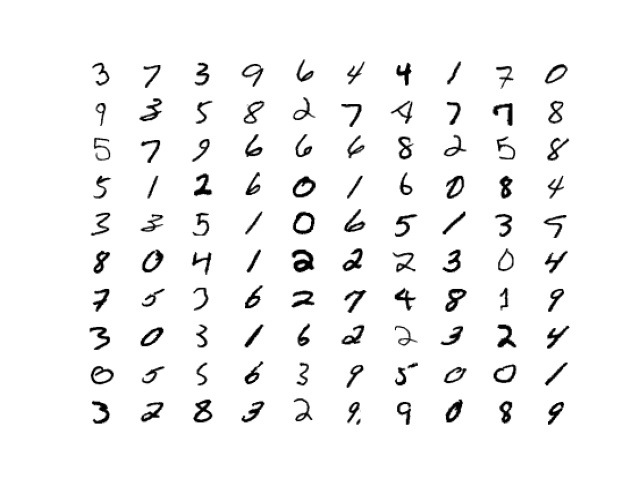 3 7 3 9 6 4 4 1 7 0
9 3 5 8 2 7 4 7 7 8
5 7 9 6 6 6 8 2 5 8
5 1 2 6 0 1 6 0 8 4
3 3 5 1 0 6 5 1 3 5
8 0 4 1 2 2 2 3 0 4
7 5 3 6 2 7 4 8 1 9
3 0 3 1 6 2 2 3 2 4
0 5 5 6 3 9 5 0 0 1
3 2 8 3 2 9. 9 0 8 9